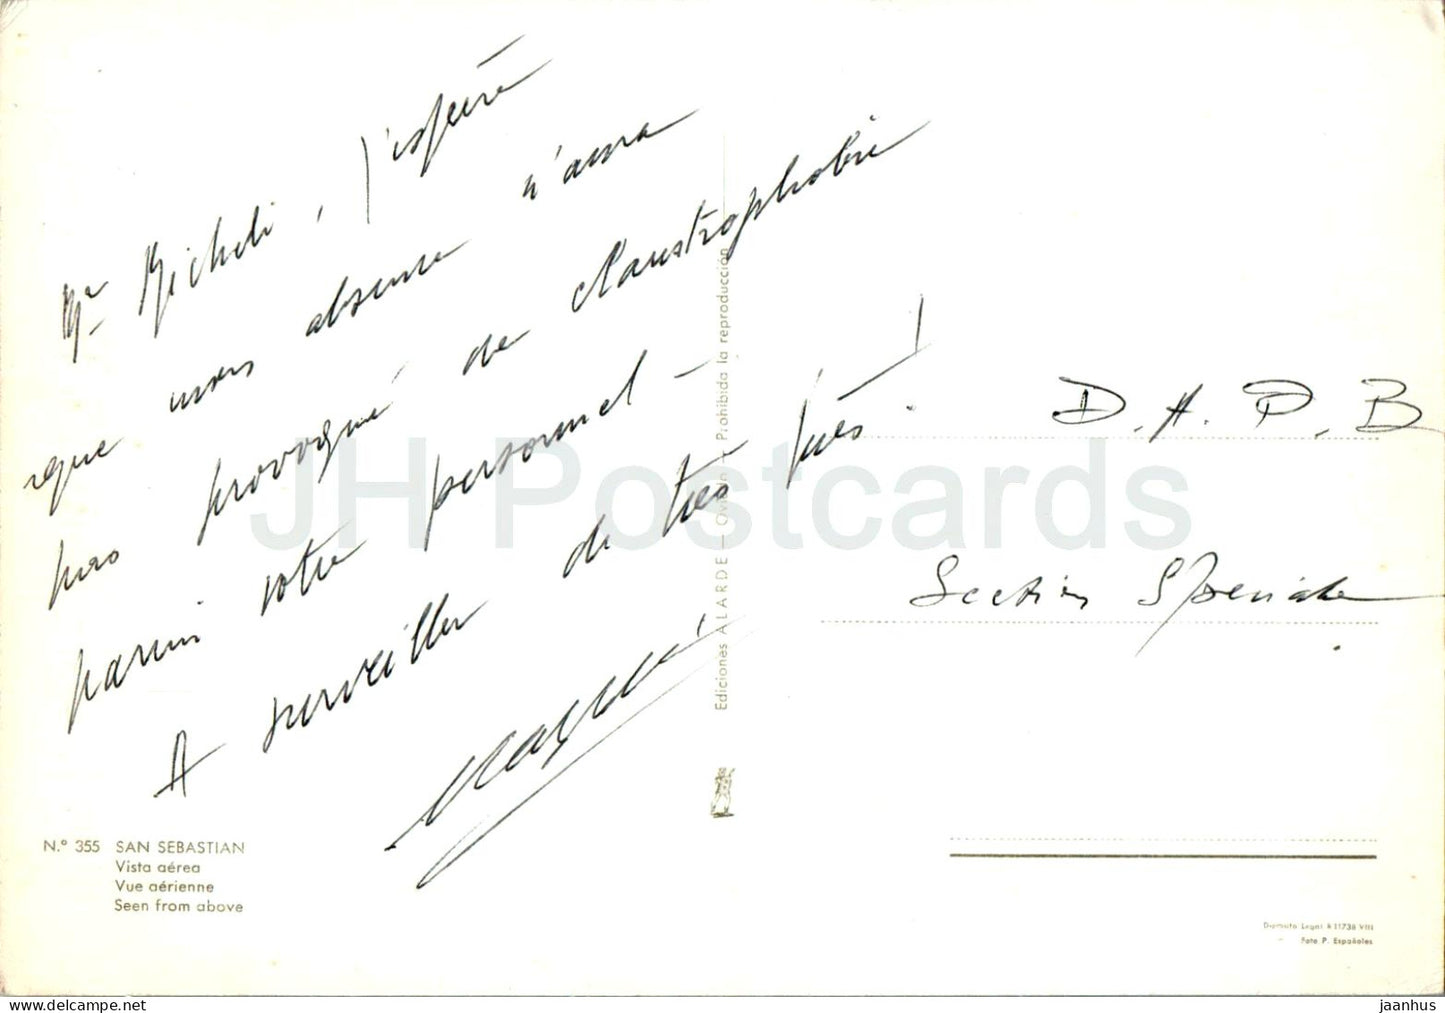 Mr Micheli, j'espère
que mon absence n'aura
pas provoqué de claustrophobie
parmi votre personnel -
A surveiller de très près !
D.A.P.B
Section Spéciale.
N.º 355 SAN SEBASTIAN
Vista aérea
Vue aérienne
Seen from above
Ediciones ALARDE - Oviedo - Prohibida la reproducción
Depósito Legal B 11738 VIII
Foto P. Españoles
JH Postcards
jaanhus.com